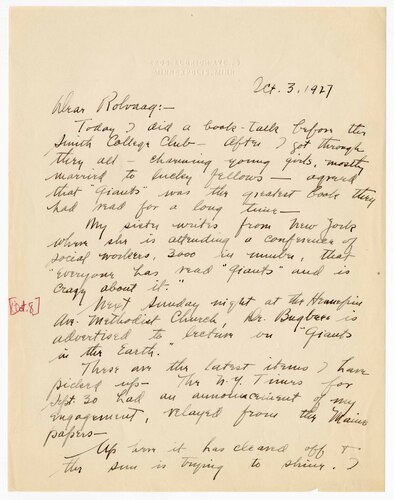 MINNEAPOLIS, MINN.
Oct. 3, 1927
Dear Rolvaag:—
Today I did a book-talk before the
Smith College Club — After I got through
they all — charming young girls, mostly
married to lucky fellows — agreed
that "Giants" was the greatest book they
had read for a long time —
My sister writes from New York
where she is attending a conference of
social workers, 3000 in number, that
"everyone has read "Giants" and is
crazy about it."
Next Sunday night at the Hennepin
Av. Methodist Church, Dr. Bugbee is
advertised to lecture on "Giants
in the Earth."
These are the latest items I have
picked up — The N.Y. Times for
Sept. 30 had an announcement of my
engagement, relayed from the Maine
papers —
Up here it has cleared off &
the sun is trying to shine. I